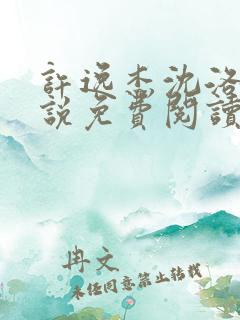 許逸杰沈洛
說免費閱讀
冉文
未經同意禁止轉載